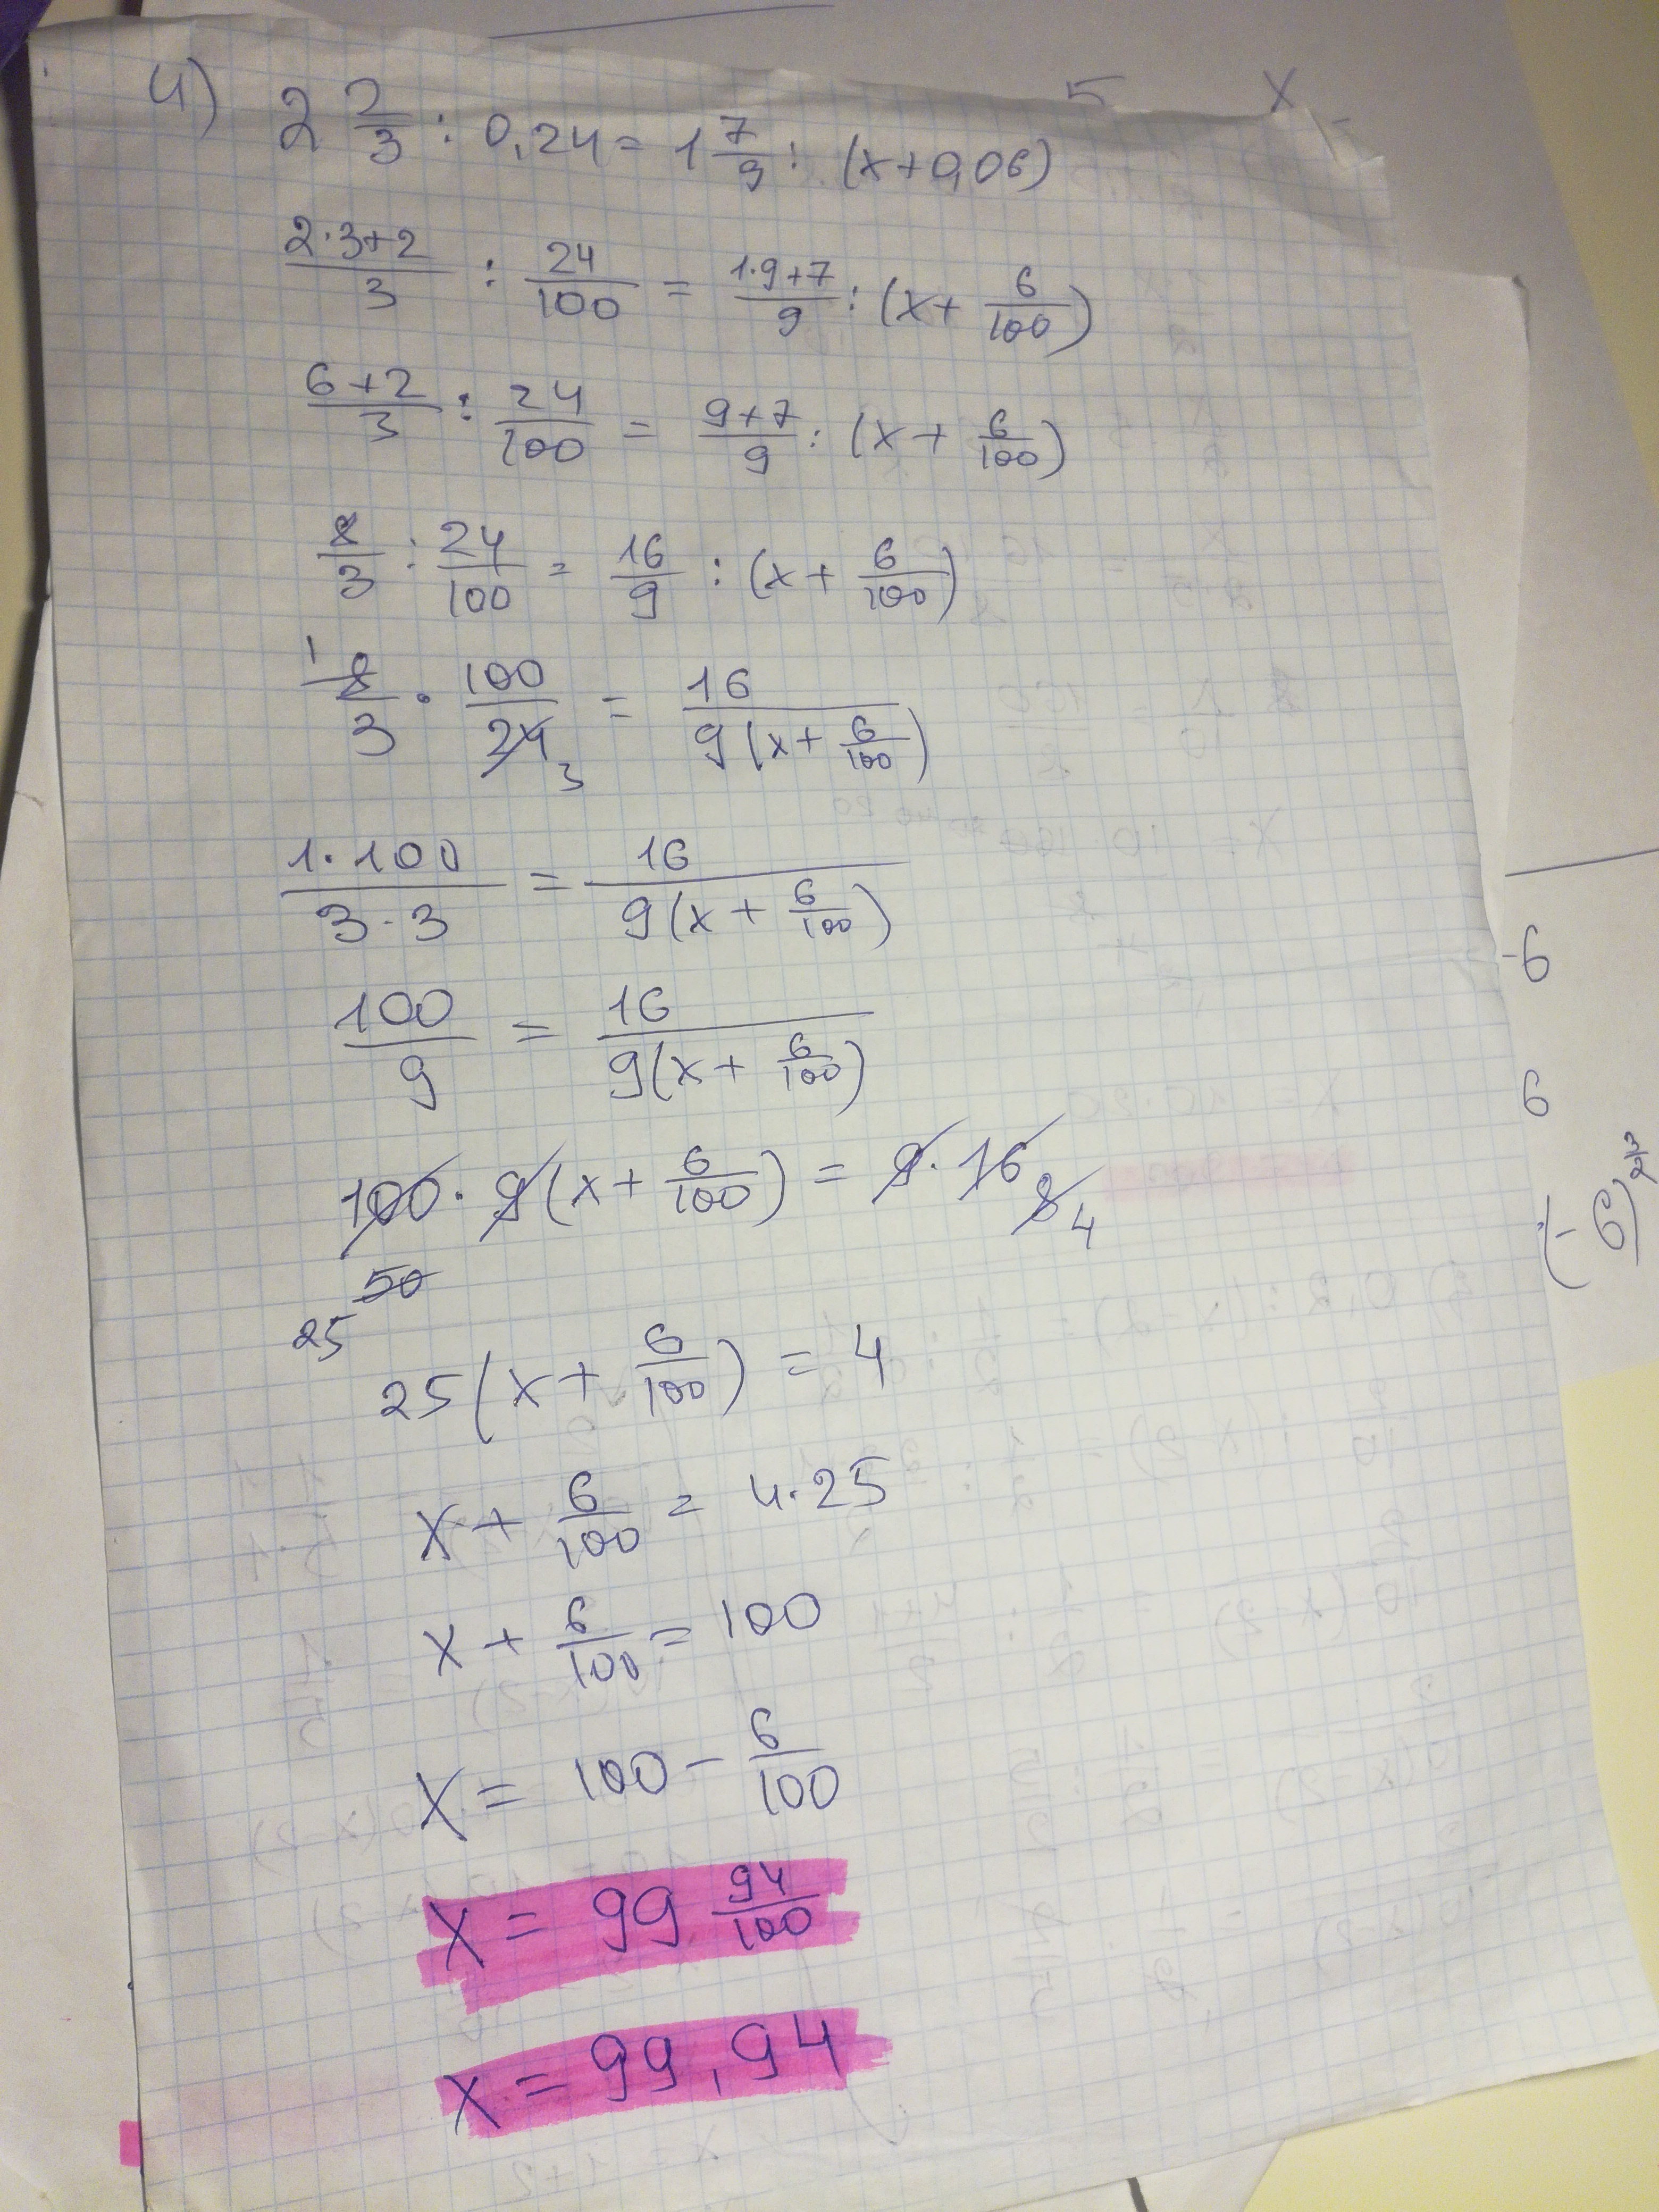 5 x
4) 2 2/3 : 0,24 = 1 7/9 : (x+0,06)
(2·3+2)/3 : 24/100 = (1·9+7)/9 : (x + 6/100)
(6+2)/3 : 24/100 = (9+7)/9 : (x + 6/100)
8/3 : 24/100 = 16/9 : (x + 6/100)
1 8/3 · 100/24 3 = 16/(9(x + 6/100))
(1·100)/(3·3) = 16/(9(x + 6/100))
-6
100/9 = 16/(9(x + 6/100))
6
100 · 9(x + 6/100) = 9·16 8 4
50
25
25(x + 6/100) = 4
x + 6/100 = 4·25
x + 6/100 = 100
x = 100 - 6/100
x = 99 94/100
x = 99,94